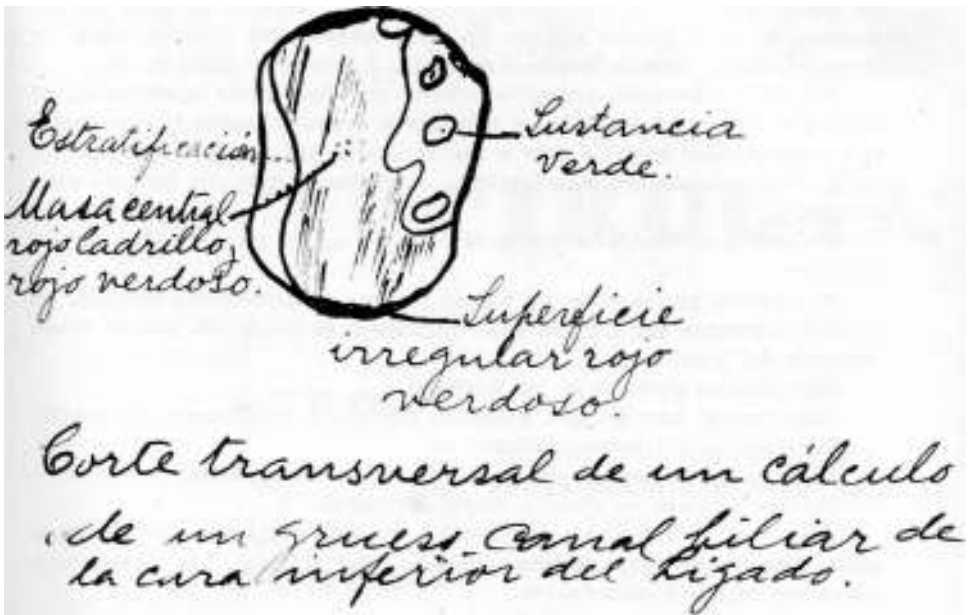 Estratificación...
Masa central
rojo ladrillo,
rojo verdoso.
Sustancia
verde.
Superficie
irregular rojo
verdoso.
Corte transversal de un cálculo
de un grueso canal biliar de
la cara inferior del hígado.